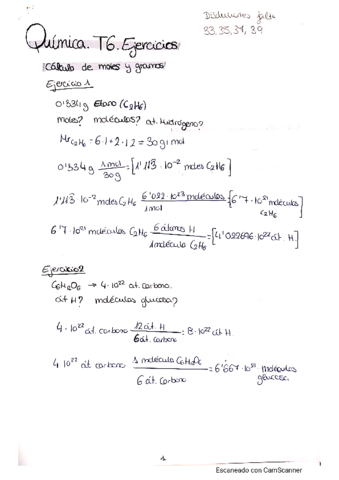 Disoluciones falta
33.35.37, 39
Química. T6. Ejercicios
Cálculo de moles y gramos
Ejercicio 1
0'334g Etano (C2H6)
moles? moléculas? at. Hidrógeno?
Mr C2H6 = 6·1+2·12 = 30g/mol
0'334g 1mol/30g = [1'113·10^-2 moles C2H6]
1'113·10^-2 moles C2H6 6'022·10^23 moléculas/1mol [6'7·10^21 moléculas C2H6]
6'7·10^21 moléculas C2H6 6 átomos H/1 molécula C2H6 = [4'022696·10^22 at. H.]
Ejercicio 2
C6H12O6 → 4·10^22 at. carbono.
át H? moléculas glucosa?
4·10^22 át. carbono 12 át. H/6 át. carbono = 8·10^22 át H.
4·10^22 át carbono 1 molécula C6H12O6/6 át. carbono = 6'667·10^21 moléculas glucosa.
1
Escaneado con CamScanner